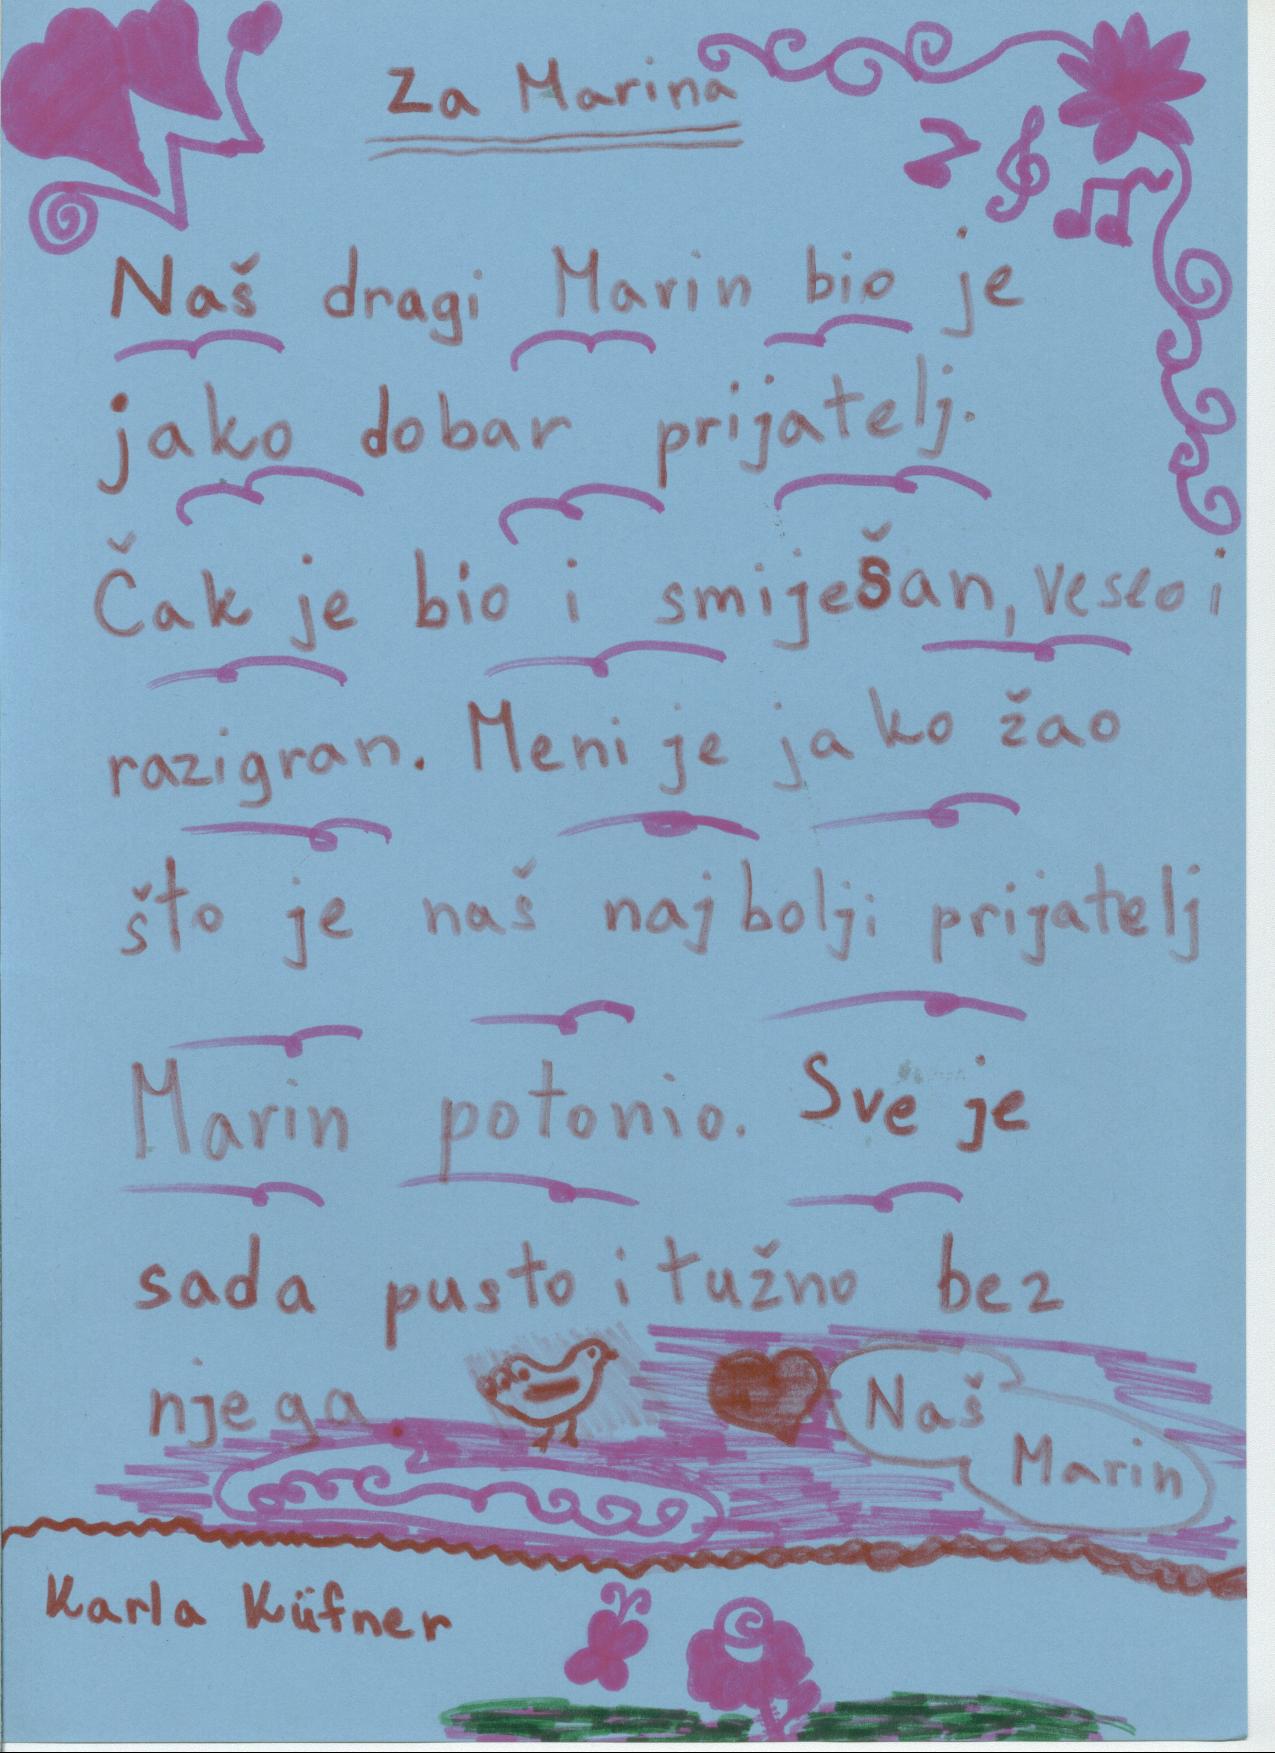 Za Marina
Naš dragi Marin bio je
jako dobar prijatelj.
Čak je bio i smiješan, veseo i
razigran. Meni je jako žao
što je naš najbolji prijatelj
Marin potonio. Sve je
sada pusto i tužno bez
njega.
Naš
Marin
Karla Küfner